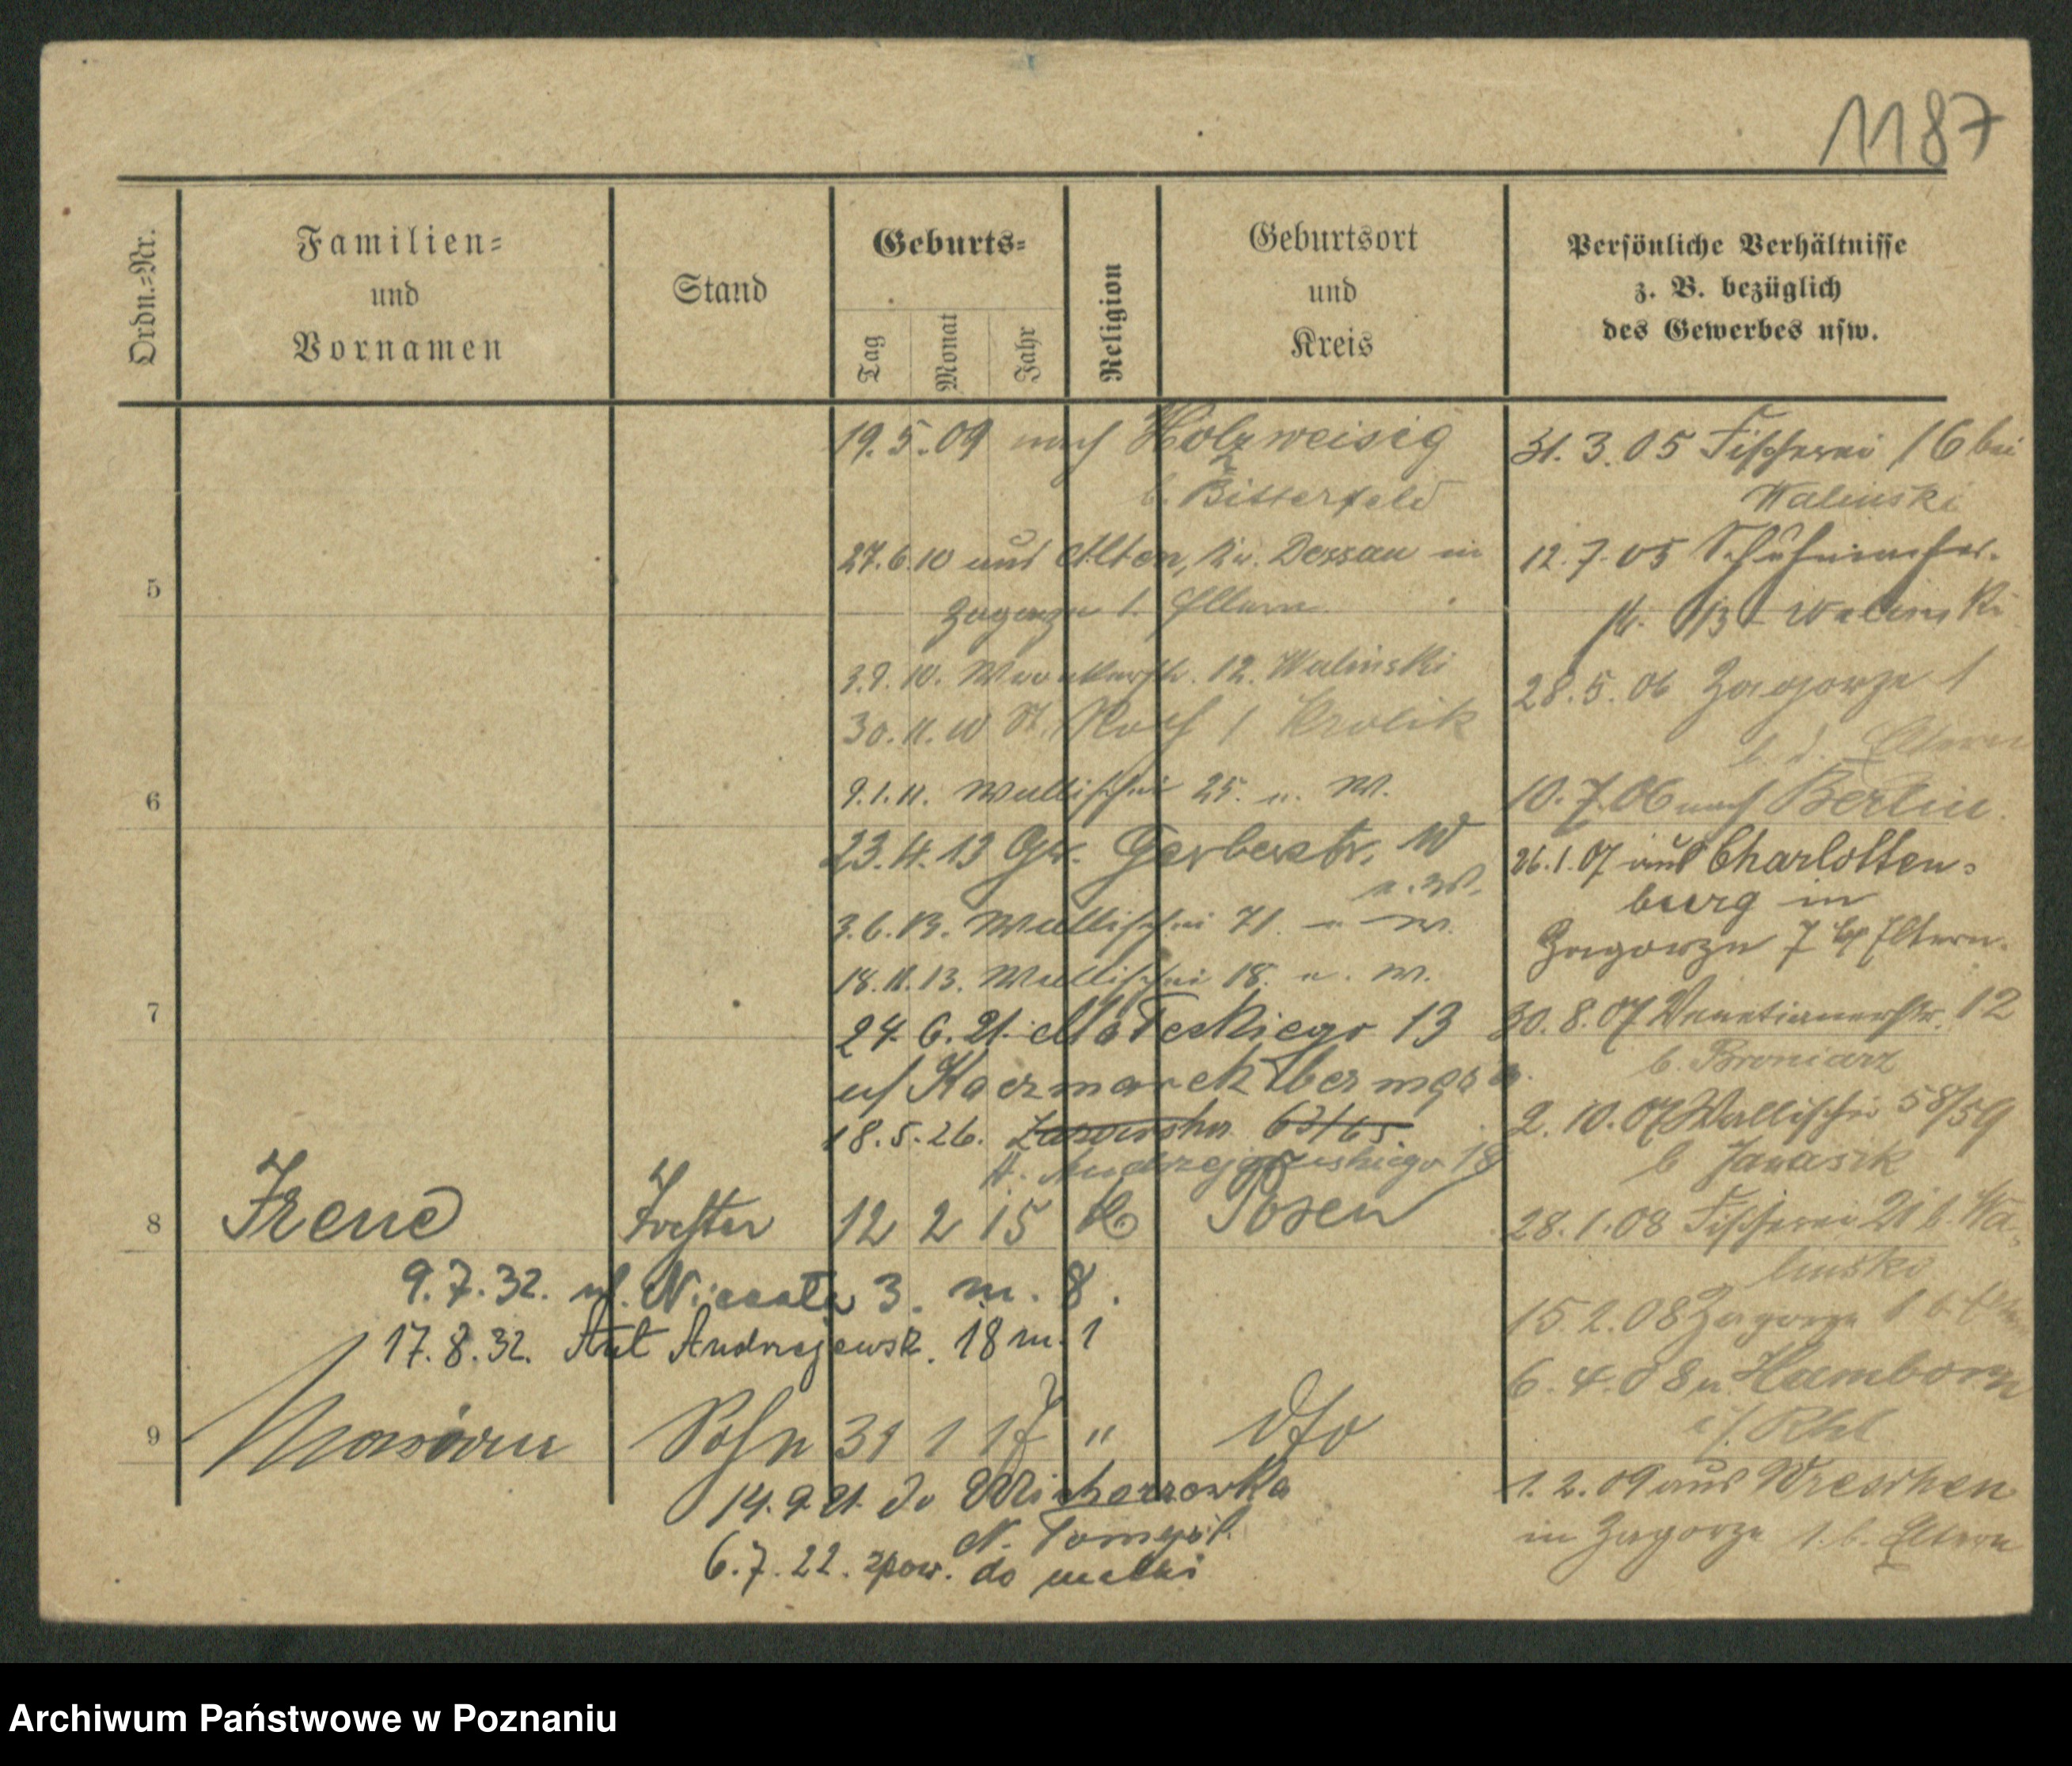 1187
Ordn.-Nr.
Familien-
und
Vornamen
Stand
Geburts-
Tag
Monat
Jahr
Religion
Geburtsort
und
Kreis
Persönliche Verhältnisse
z. B. bezüglich
des Gewerbes usw.
19.5.09 nach Holzweisig
b. Bitterfeld
27.6.10 aus Alten, Kr. Dessau in
Zagorze 1. Eltern
3.9.10. 12. Walinski
30.11.10 St. Roch 1 Krolik
9.1.11. Wallischei 25. u. W.
23.4.13 Gr. Gerberstr. W
u. W.
3.6.13. Wallischei 71. u. W.
18.11.13. Wallischei 18. u. W.
24.6.21. 13
u/ Kaczmarek
18.5.26. 63/65.
A. Andrzejewskiego 18
31.3.05 Fischerei 16 bei
Walinski
12.7.05 Schuhmacher-
Walinski
28.5.06 Zagorze 1
b. d. Eltern
10.7.06 nach Berlin.
26.1.07 aus Charlotten-
burg in
Zagorze 7 Eltern.
30.8.07 Venetianerstr. 12
b. Broniarz
2.10.07 Wallischei 58/59
b Janasik
28.1.08 Fischerei 21 b. Wa-
linski
15.2.08 Zagorze 1 b. Eltern
6.4.08 n. Hamborn
a/ Rhl
1.2.09 aus Wreschen
in Zagorze 1. b. Eltern
5
6
7
8 Irene Tochter 12 2 15 Posen
9.7.32. ul. 3. m. 8.
17.8.32. Andrzejewsk. 18 m. 1
9 Sohn 31 1 17 " dto
14.9.21. do
N. Tomyśl.
6.7.22. zpow. do matki
Archiwum Państwowe w Poznaniu